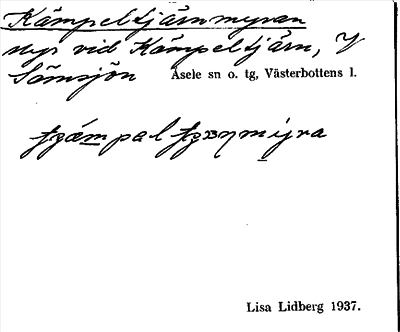 Kämpeltjärnmyran
Myr vid Kämpeltjärn, V
Sämsjön Åsele sn o. tg, Västerbottens l.
Lisa Lidberg 1937.